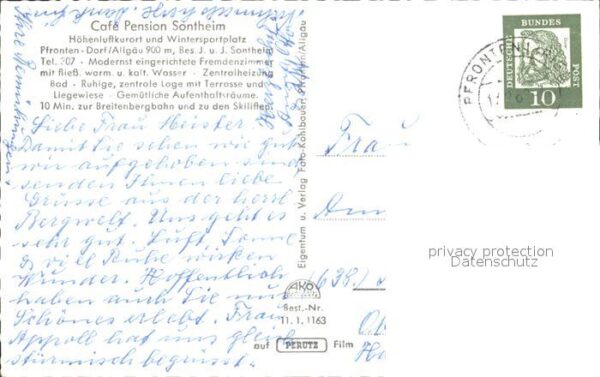 Café Pension Sontheim
Höhenluftkurort und Wintersportplatz
Pfronten-Dorf/Allgäu 900 m, Bes. J. u. J. Sontheim
Tel. 307 - Modernst eingerichtete Fremdenzimmer
mit fließ. warm. u. kalt. Wasser - Zentralheizung
Bad - Ruhige, zentrale Lage mit Terrasse und
Liegewiese - Gemütliche Aufenthaltsräume.
10 Min. zur Breitenbergbahn und zu den Skiliften
Liebe Frau Meister.
Damit Sie sehen wie gut
wir aufgehoben sind
senden Ihnen liebe
Grüsse aus der herrl
Bergwelt. Uns geht es
sehr gut. Luft, Sonne
& viel Ruhe wirken
Wunder. Hoffentlich
haben auch Sie nur
Schönes erlebt. Frau
Appoll hat uns gleich
stürmisch begrüsst.
Eigentum u. Verlag Foto-Kohlbauer, Pfronten/Allgäu
AKO
Best.-Nr.
11.1.1163
auf PERUTZ Film
DEUTSCHE
BUNDES
POST
10
PFRONTEN
Frau
(638)
privacy protection
Datenschutz